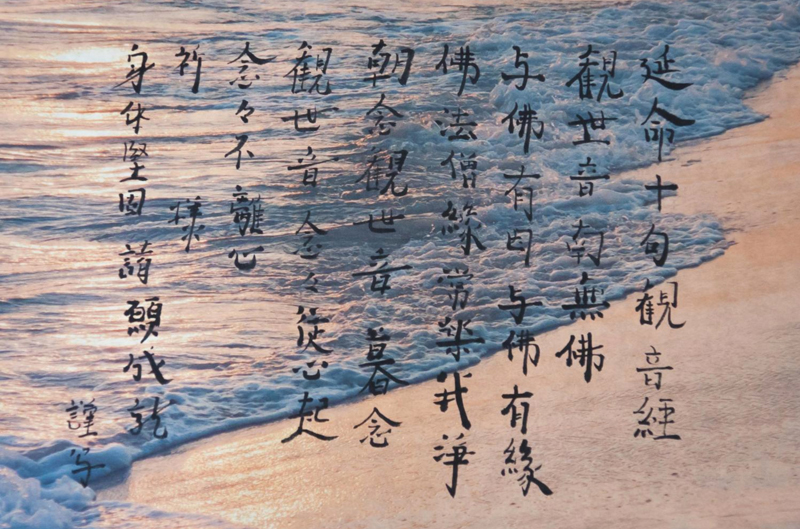 延命十句観音経
観世音南無佛
与佛有因与佛有縁
佛法僧縁常楽我浄
朝念観世音暮念
観世音念々従心起
念々不離心
祈　様
身体堅固諸願成就
謹写